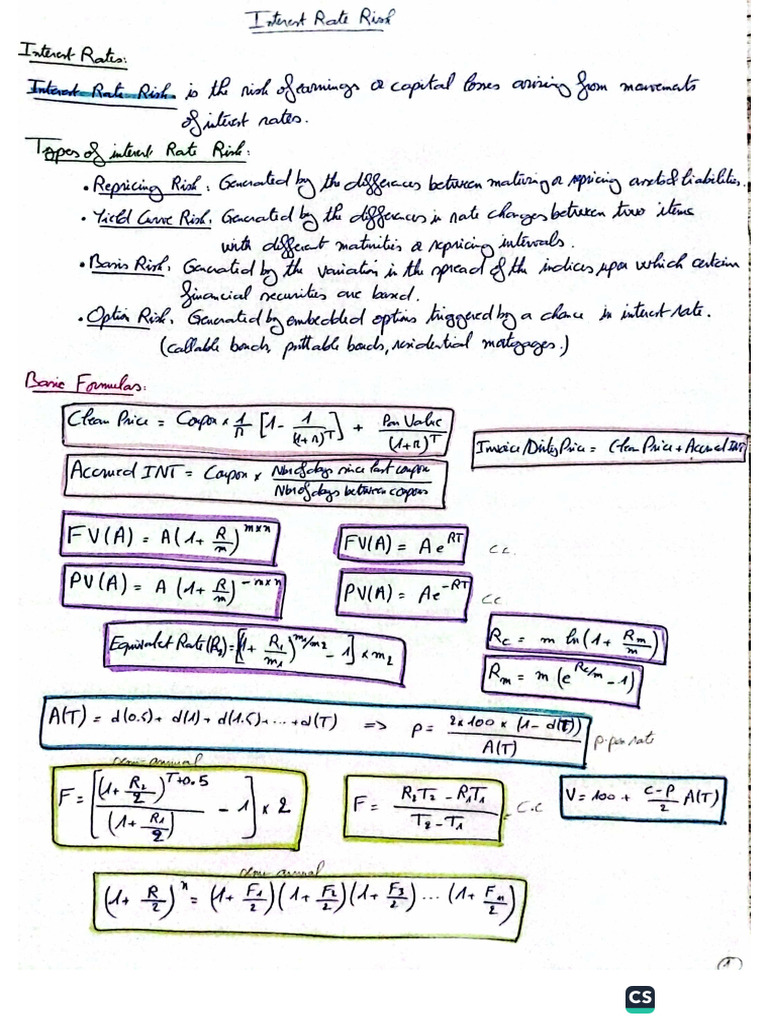 Interest Rate Risk
Interest Rates:
Interest Rate Risk is the risk of earnings or capital losses arising from movements
of interest rates.
Types of interest Rate Risk:
• Repricing Risk: Generated by the differences between maturing or repricing assets & liabilities.
• Yield Curve Risk: Generated by the differences in rate changes between two items
with different maturities or repricing intervals.
• Basis Risk: Generated by the variation in the spread of the indices upon which certain
financial securities are based.
• Option Risk: Generated by embedded options triggered by a chance in interest rate.
(callable bonds, puttable bonds, residential mortgages.)
Basic Formulas:
Clean Price = Coupon × 1/R [1 - 1/(1+R)^T] + Par Value/(1+R)^T
Invoice/Dirty Price = Clean Price + Accrued INT
Accrued INT = Coupon × Nbr of days since last coupon/Nbr of days between coupons
FV(A) = A(1 + R/m)^(m×n) FV(A) = A e^(RT) c.c.
PV(A) = A (1 + R/m)^(-m×n) PV(A) = Ae^(-RT) cc
Equivalent Rate (R₂) = [(1 + R₁/m₁)^(m₁/m₂) - 1] × m₂ Rc = m ln(1 + Rm/m)
Rm = m(e^(Rc/m) - 1)
A(T) = d(0.5) + d(1) + d(1.5) + ... + d(T) => P = 2×100×(1 - d(T))/A(T) p.par rate
semi-annual
F = [(1 + R₂/2)^(T+0.5)/(1 + R₁/2) - 1] × 2 F = (R₂T₂ - R₁T₁)/(T₂ - T₁) = c.c V = 100 + (c-P)/2 A(T)
semi-annual
(1 + R/2)^n = (1 + F₁/2)(1 + F₂/2)(1 + F₃/2) ... (1 + Fn/2)
1
CS